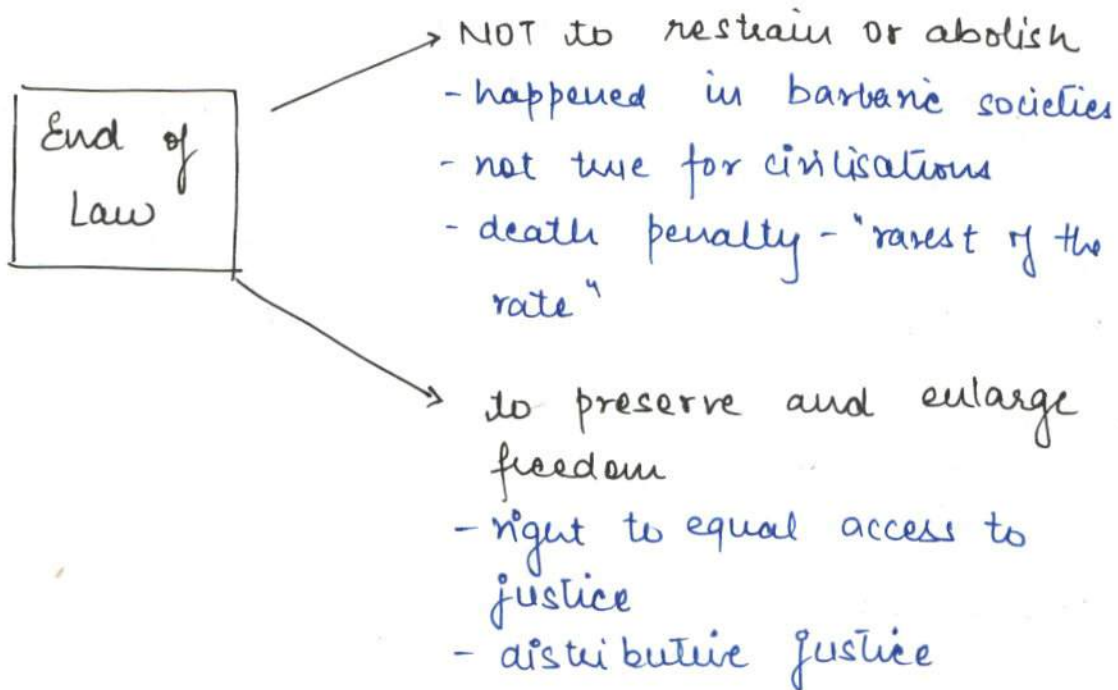 End of
Law
NOT to restrain or abolish
- happened in barbaric societies
- not true for civilisations
- death penalty - "rarest of the
rate"
to preserve and enlarge
freedom
- right to equal access to
justice
- distributive justice